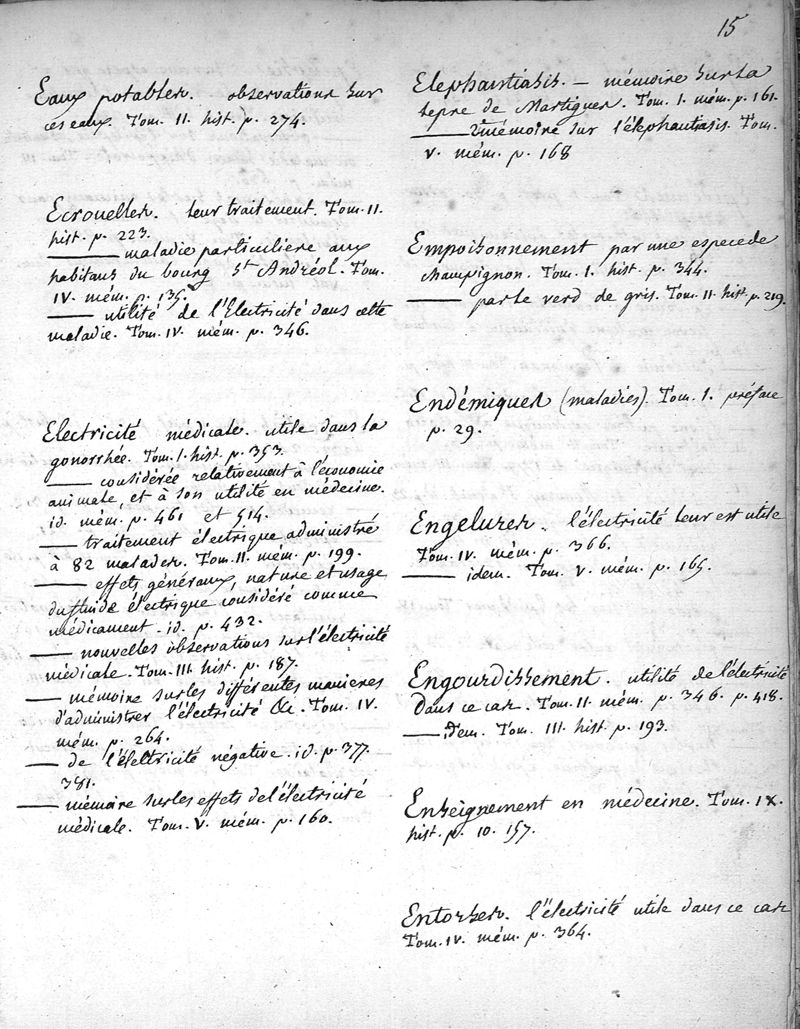 15
Eaux potables. observations sur
ces eaux. Tom. II. hist. p. 274.
Ecrouelles. leur traitement. Tom. II.
hist. p. 223.
—— maladie particuliere aux
habitans du bourg St Andréol. Tom.
IV. mém. p. 135.
—— utilité de l'Electricité dans cette
maladie. Tom. IV. mém. p. 346.
Electricité médicale. utile dans la
gonorrhée. Tom. I. hist. p. 353.
—— considérée relativement à l'économie
animale, et à son utilité en médecine.
id. mém. p. 461 et 514.
—— traitement électrique administré
à 82 malades. Tom. II. mém. p. 199.
—— effets généraux, nature et usage
du fluide électrique considéré comme
médicament. id. p. 432.
—— nouvelles observations sur l'électricité
médicale. Tom. III. hist. p. 187.
—— mémoire sur les différentes manieres
d'administrer l'électricité &c. Tom. IV.
mém. p. 264.
—— de l'électricité négative. id. p. 377.
381.
—— mémoire sur les effets de l'électricité
médicale. Tom. V. mém. p. 160.
Elephantiasis. — mémoire sur la
lepre de Martigues. Tom. I. mém. p. 161.
—— 2e mémoire sur l'élephantiasis. Tom.
V. mém. p. 168
Empoisonnement par une espece de
champignon. Tom. I. hist. p. 344.
—— par le verd de gris. Tom. II hist. p. 219.
Endémiques (maladies). Tom. I. préface
p. 29.
Engelures. l'électricité leur est utile
Tom. IV. mém. p. 366.
—— idem. Tom. V. mém. p. 165.
Engourdissement. utilité de l'électricité
dans ce cas. Tom. II. mém. p. 346. p. 418.
—— idem. Tom. III. hist. p. 193.
Enseignement en médecine. Tom. IX.
hist. p. 10. 157.
Entorses. l'électricité utile dans ce cas
Tom. IV. mém. p. 364.